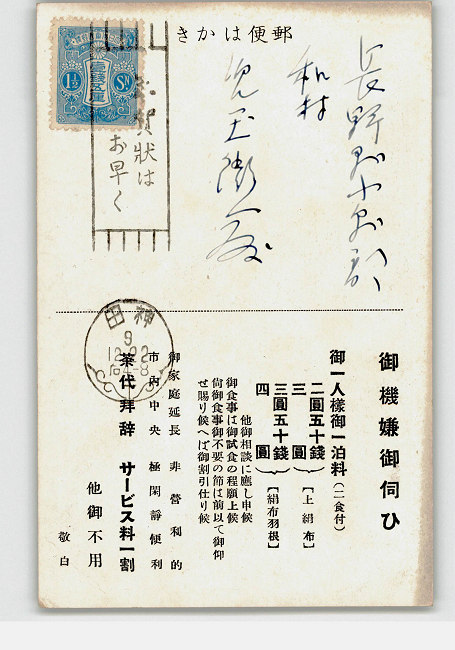 郵便はかき
1½ Sn
壹錢五厘
賀狀は
お早く
長野縣小縣郡
和村
神田
9
御機嫌御伺ひ
御一人樣御一泊料（二食付）
二圓五十錢
三圓
［上絹布］
三圓五十錢
四圓
［絹布羽根］
他御相談に應し申候
御食事は御試食の程願上候
尙御食事御不要の節は前以て御仰
せ賜り候へば御割引仕り候
御家庭延長 非營利的
市內中央 極閑靜便利
茶代拜辞 サービス料一割
他御不用
敬白